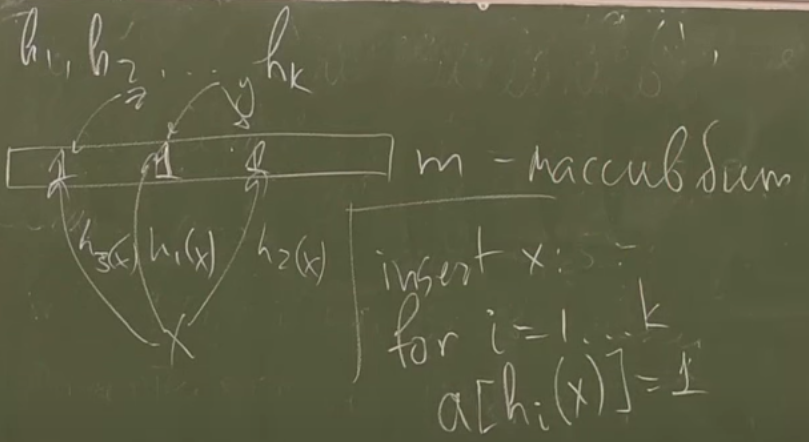 h₁, h₂, ... hₖ
z y
1 1 1 m - массив бит
h₃(x) h₁(x) h₂(x)
x
insert x:
for i=1...k
a[hᵢ(x)]=1